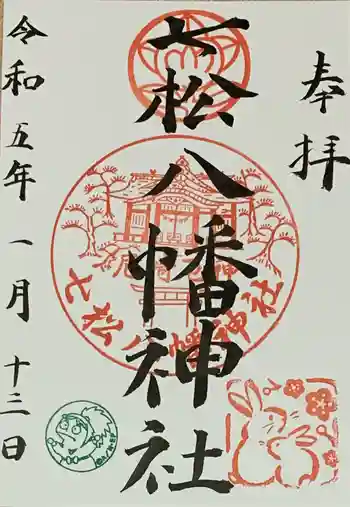 奉拝
七松八幡神社
令和五年一月十三日
七松八幡神社